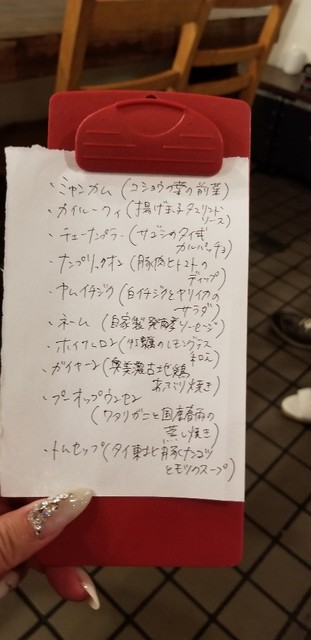 ・ミャンカム(コショウの葉の前菜)
・カイルークゥイ(揚げ玉子タマリンド
ソース)
・チェーナンプラー(サゴシのタイ式
カルパッチョ)
・ナンプリックオン(豚肉とトマトの
ディップ)
・ヤムイチジク(白イチジクとヤリイカの
サラダ)
・ネーム(自家製発酵ソーセージ)
・ホイ(のレモングラス
和え)
・ガイヤーン(奥美濃古地鶏
あぶり焼き)
・プーオップウンセン
(ワタリガニと国産春雨の
蒸し焼き)
・トムセップ(タイ東北豚ナンコツ
とモツのスープ)